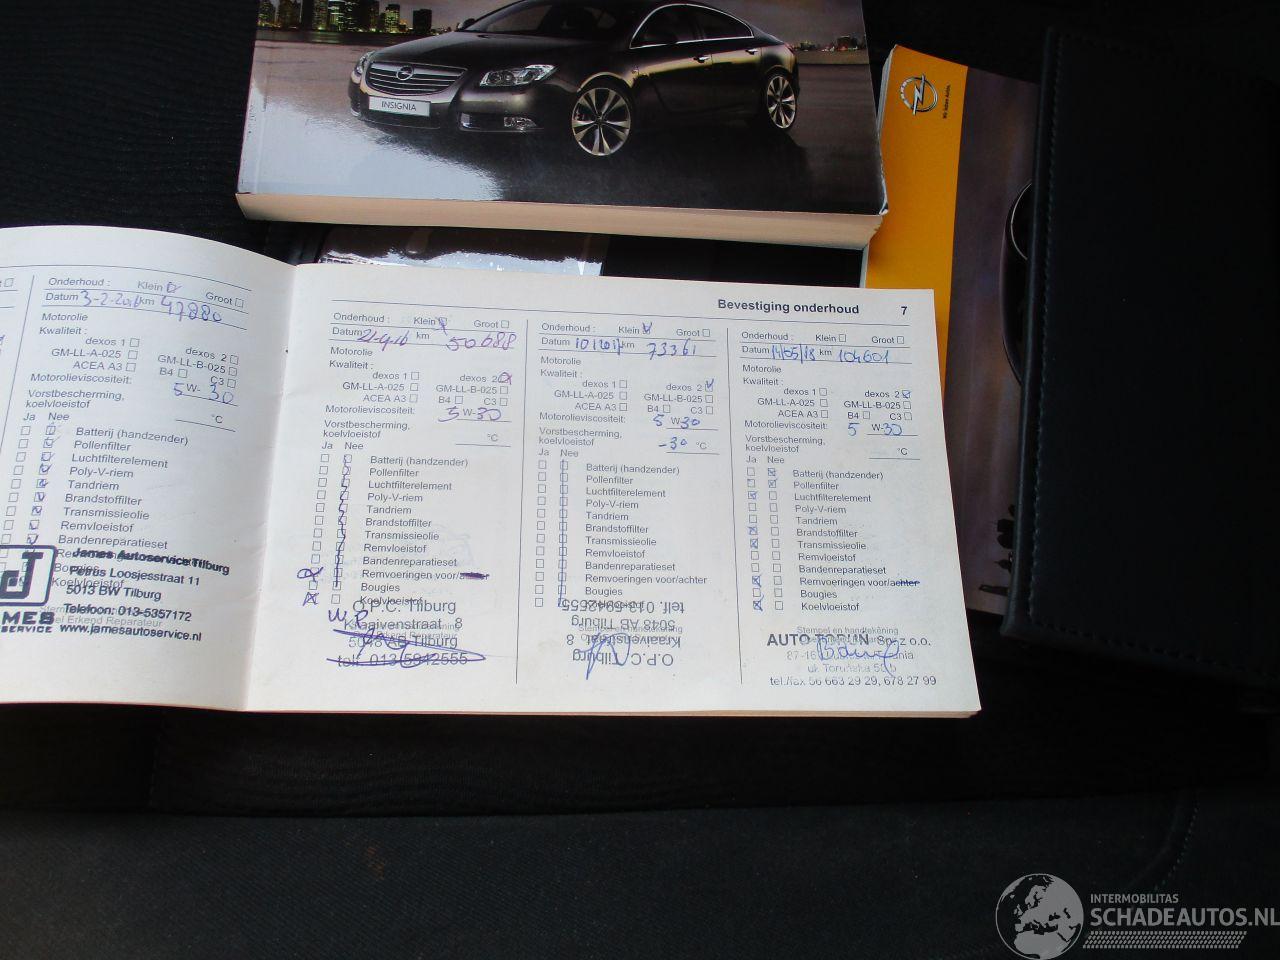 INSIGNIA
Wir leben Autos.
Onderhoud : Klein Groot
Datum 3-2-2016 km 47880
Motorolie
Kwaliteit :
dexos 1 dexos 2
GM-LL-A-025 GM-LL-B-025
ACEA A3 B4 C3
Motorolieviscositeit: 5 W- 30
Vorstbescherming,
koelvloeistof °C
Ja Nee
Batterij (handzender)
Pollenfilter
Luchtfilterelement
Poly-V-riem
Tandriem
Brandstoffilter
Transmissieolie
Remvloeistof
Bandenreparatieset
Bougies
Koelvloeistof
James Autoservice Tilburg
Petrus Loosjesstraat 11
5013 BW Tilburg
Telefoon: 013-5357172
www.jamesautoservice.nl
Bevestiging onderhoud 7
Onderhoud : Klein Groot
Datum 21-4-16 km 50688
Motorolie
Kwaliteit :
dexos 1 dexos 2
GM-LL-A-025 GM-LL-B-025
ACEA A3 B4 C3
Motorolieviscositeit: 5 W-30
Vorstbescherming,
koelvloeistof °C
Ja Nee
Batterij (handzender)
Pollenfilter
Luchtfilterelement
Poly-V-riem
Tandriem
Brandstoffilter
Transmissieolie
Remvloeistof
Bandenreparatieset
Remvoeringen voor/achter
Bougies
Koelvloeistof
O.P.C. Tilburg
Kraaivenstraat 8
5048 AB Tilburg
telf. 013 5942555
Onderhoud : Klein Groot
Datum km 73361
Motorolie
Kwaliteit :
dexos 1 dexos 2
GM-LL-A-025 GM-LL-B-025
ACEA A3 B4 C3
Motorolieviscositeit: 5 W-30
Vorstbescherming,
koelvloeistof -30 °C
Ja Nee
Batterij (handzender)
Pollenfilter
Luchtfilterelement
Poly-V-riem
Tandriem
Brandstoffilter
Transmissieolie
Remvloeistof
Bandenreparatieset
Remvoeringen voor/achter
Bougies
Koelvloeistof
O.P.C. Tilburg
Kraaivenstraat 8
5048 AB Tilburg
telf. 013 5942555
Onderhoud : Klein Groot
Datum 14/05/18 km 104601
Motorolie
Kwaliteit :
dexos 1 dexos 2
GM-LL-A-025 GM-LL-B-025
ACEA A3 B4 C3
Motorolieviscositeit: 5 W-30
Vorstbescherming,
koelvloeistof °C
Ja Nee
Batterij (handzender)
Pollenfilter
Luchtfilterelement
Poly-V-riem
Tandriem
Brandstoffilter
Transmissieolie
Remvloeistof
Bandenreparatieset
Remvoeringen voor/achter
Bougies
Koelvloeistof
Stempel en handtekening
AUTO Sp. z o.o.
ul. Toruńska
tel./fax 56 663 29 29, 678 27 99
INTERMOBILITAS
SCHADEAUTOS.NL